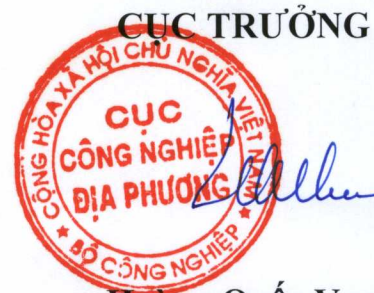 CỤC TRƯỞNG
CỘNG HÒA XÃ HỘI CHỦ NGHĨA VIỆT NAM
CỤC
CÔNG NGHIỆP
ĐỊA PHƯƠNG
★ BỘ CÔNG NGHIỆP ★